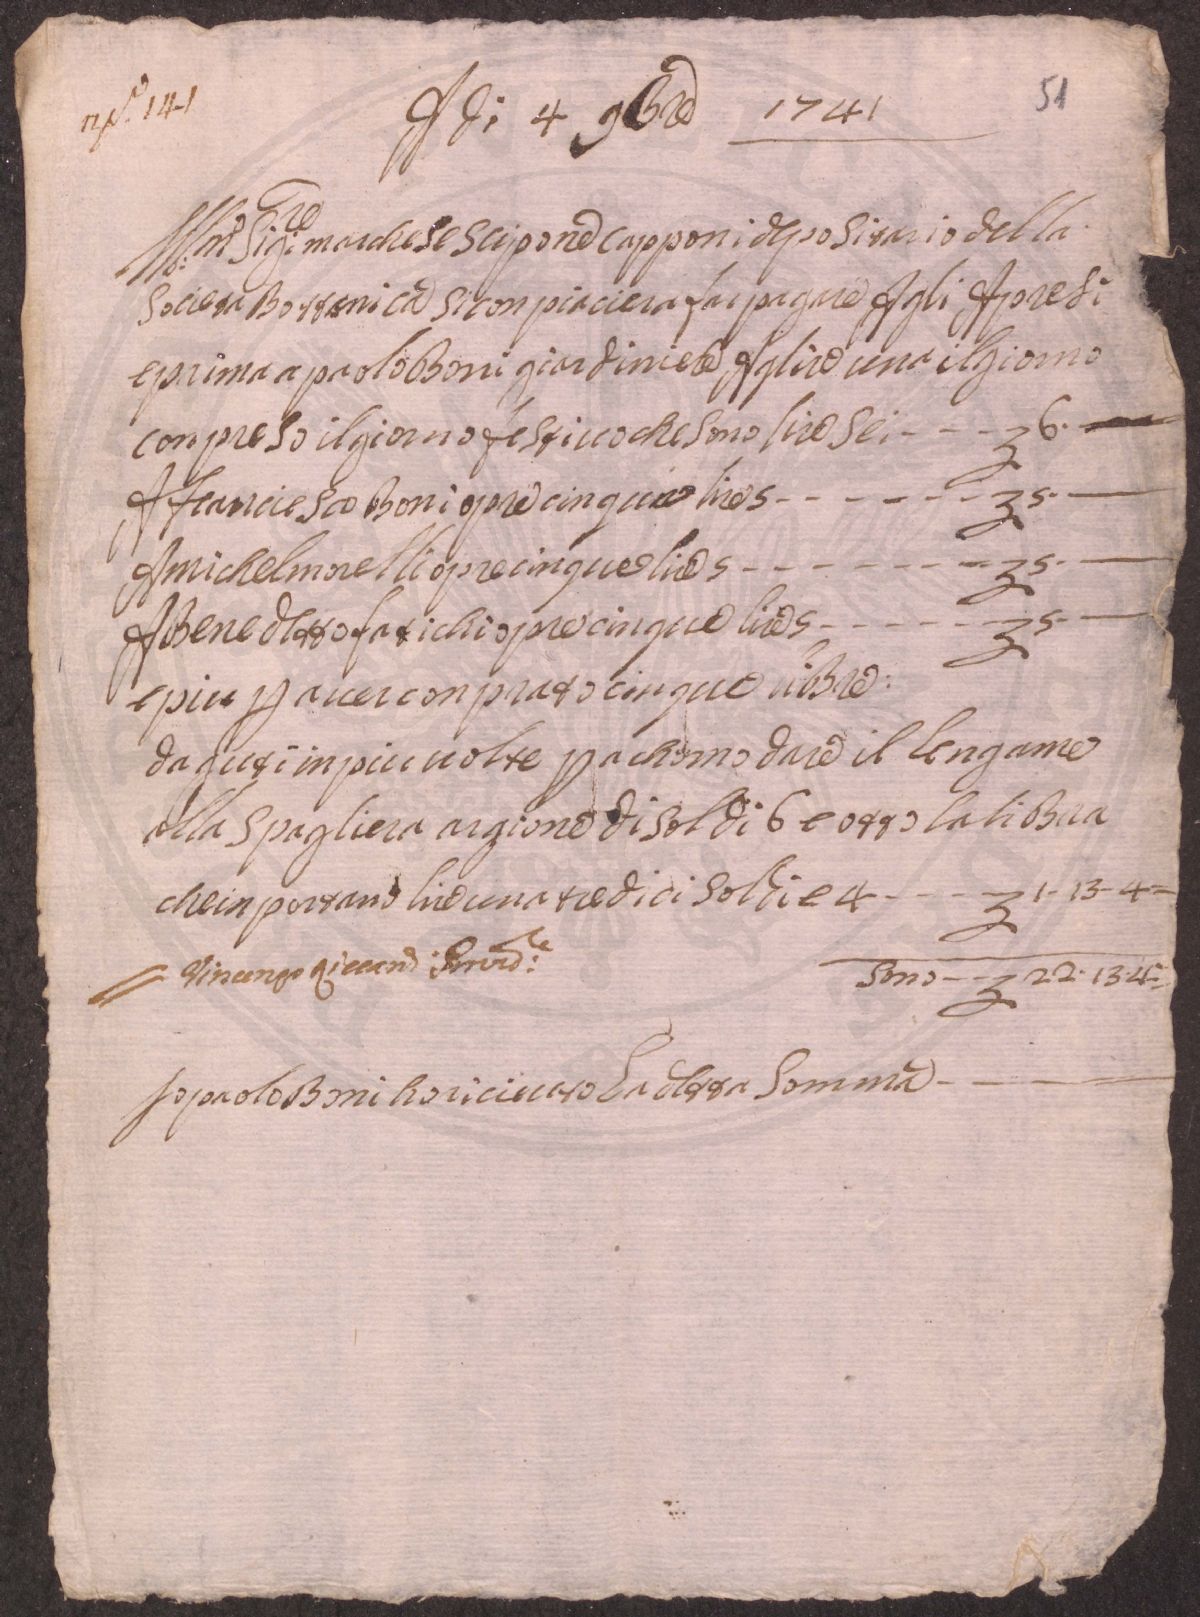 n.o 141
51
A di 4 9bre 1741
Ill.mo Sig.re marchese scipone capponi depositario della
Societa Bottanica si conpiaciera far pagare Agli Apresi
e prima a paolo Boni giardiniere A lire una il giorno
conpreso il giorno festiuo che sono lire sei - - - 6. —
A franciesco Boni opre cinque lire 5 - - - - - - 5. —
A michel morelli opre cinque lire 5 - - - - - - - 5. —
A Benedetto fatichi opre cinque lire 5 - - - - - 5. —
e piu p auer conprato cinque libre:
da guti in piu uolte p achomodare il lengame
alla spagliera a ragione di soldi 6 e otto la libra
che inportano lire una tredici soldi e 4 - - - 1. 13. 4
Vincenzo
Sono - - 22. 13. 4
Io paolo Boni ho riceuuto La detta Somma - - -